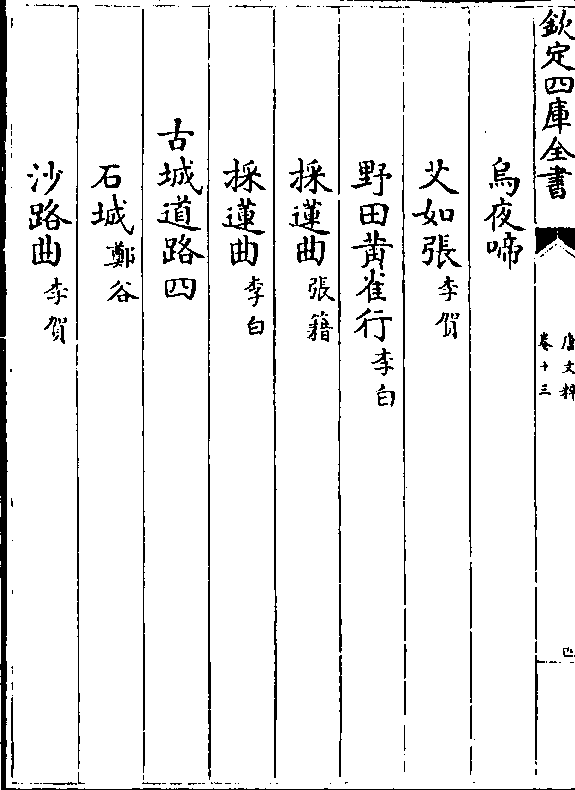 欽定四庫全書
唐文粹
卷十三
四
烏夜啼
艾如張李賀
野田黄雀行李白
採蓮曲張籍
採蓮曲李白
古城道路四
石城鄭谷
沙路曲李賀